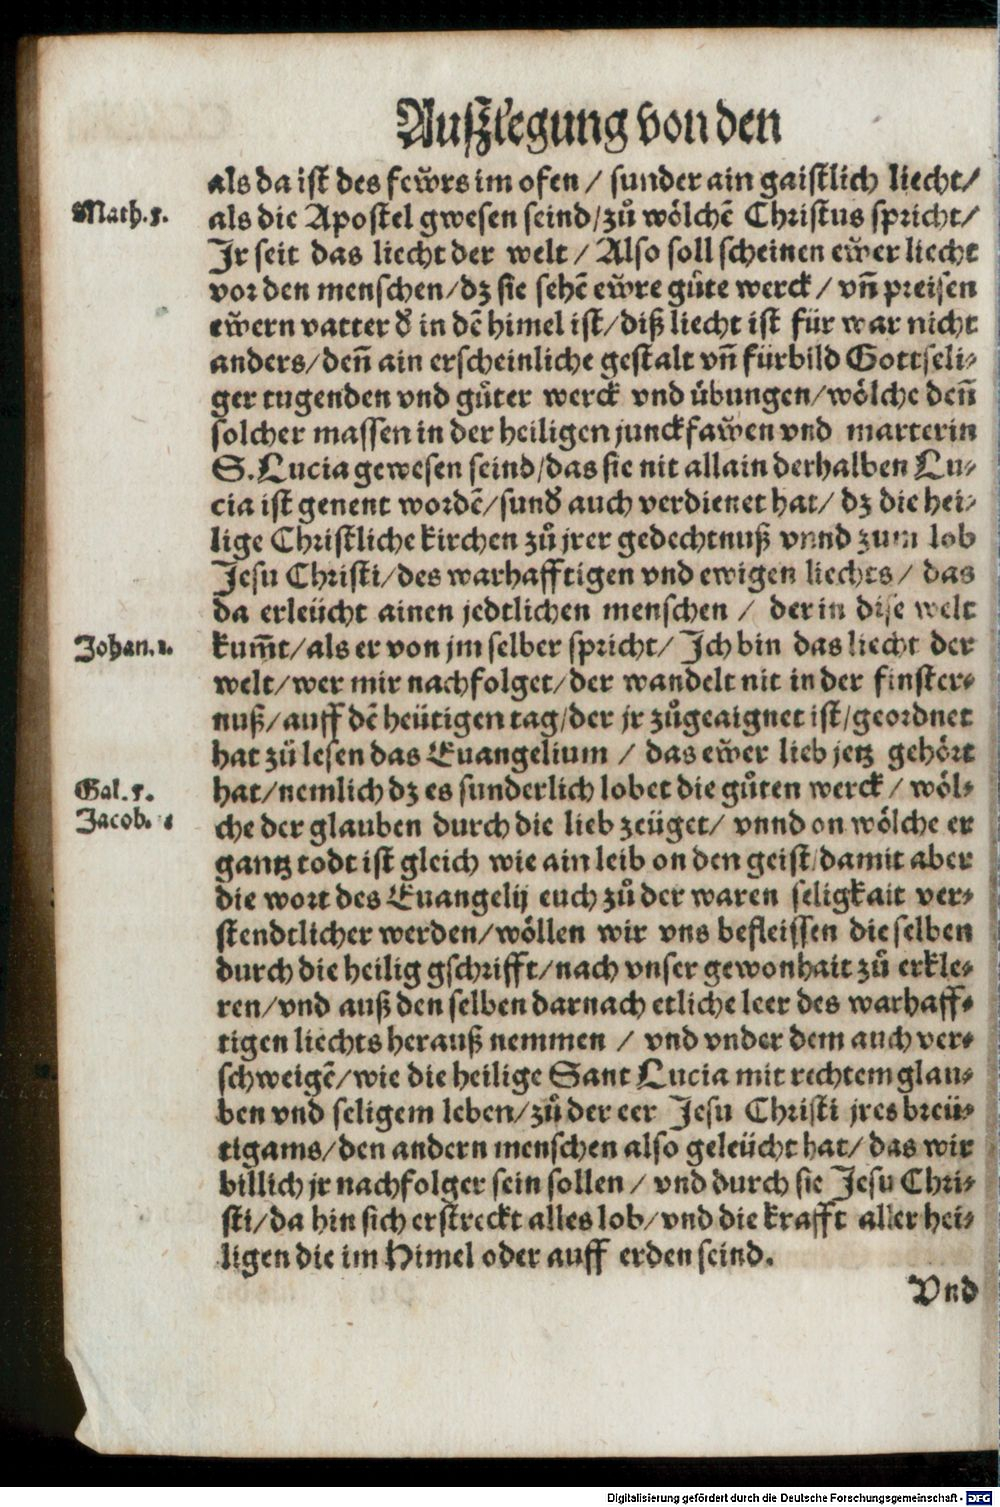 Außlegung von den
als da ist des feẅrs im ofen / sunder ain gaistlich liecht/
Math.5.
als die Apostel gwesen seind/zů wölchē Christus spricht/
Jr seit das liecht der welt / Also soll scheinen eẅer liecht
vor den menschen/dz sie sehē eẅre gůte werck / vñ preisen
eẅern vatter đ in dē himel ist/diß liecht ist für war nicht
anders/deñ ain erscheinliche gestalt vñ fürbild Gottseli-
ger tugenden vnd gůter werck vnd übungen/wölche deñ
solcher massen in der heiligen junckfaẅen vnd marterin
S. Lucia gewesen seind/das sie nit allain derhalben Lu-
cia ist genent wordē/sunđ auch verdienet hat/ dz die hei-
lige Christliche kirchen zů jrer gedechtnuß vnnd zum lob
Jesu Christi/des warhafftigen vnd ewigen liechts/ das
da erleücht ainen jedtlichen menschen / der in dise welt
Johan.1.
kum̄t/als er von jm selber spricht/ Jch bin das liecht der
welt/wer mir nachfolget/der wandelt nit in der finster-
nuß/auff dē heütigen tag/der jr zůgeaignet ist/geordnet
hat zů lesen das Euangelium / das eẅer lieb jetz gehört
Gal.5.
hat/nemlich dz es sunderlich lobet die gůten werck / wöl-
Jacob.
che der glauben durch die lieb zeüget/ vnnd on wölche er
gantz todt ist gleich wie ain leib on den geist/damit aber
die wort des Euangelij euch zů der waren seligkait ver-
stendtlicher werden/wöllen wir vns befleissen die selben
durch die heilig gschrifft/nach vnser gewonhait zů erkle-
ren/vnd auß den selben darnach etliche leer des warhaff-
tigen liechts herauß nemmen / vnd vnder dem auch ver-
schweigē/wie die heilige Sant Lucia mit rechtem glau-
ben vnd seligem leben/zů der eer Jesu Christi jres breü-
tigams/den andern menschen also geleücht hat/das wir
billich jr nachfolger sein sollen / vnd durch sie Jesu Chri-
sti/da hin sich erstreckt alles lob/vnd die krafft aller hei-
ligen die im Himel oder auff erden seind.
Vnd
Digitalisierung gefördert durch die Deutsche Forschungsgemeinschaft - DFG